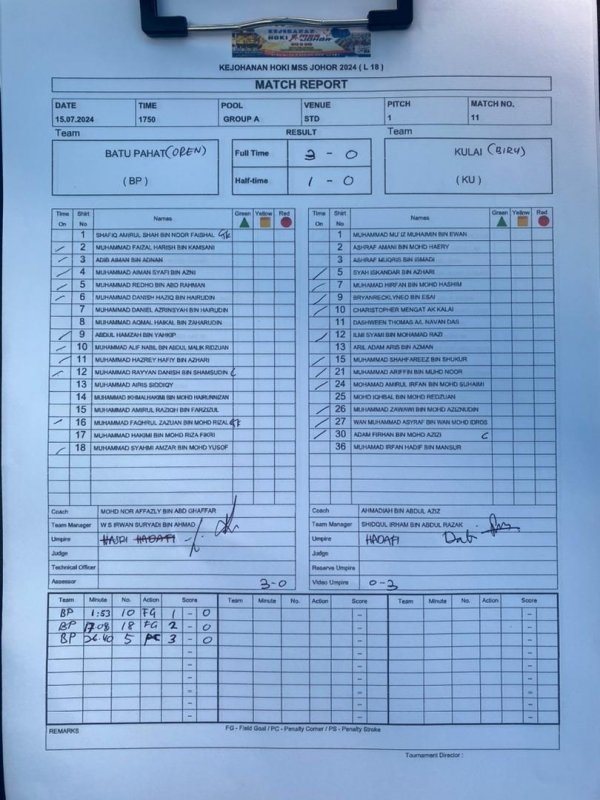 KEJOHANAN
HOKI MSS JOHOR
KEJOHANAN HOKI MSS JOHOR 2024 ( L 18 )
MATCH REPORT
DATE TIME POOL VENUE PITCH MATCH NO.
15.07.2024 1750 GROUP A STD 1 11
Team RESULT Team
BATU PAHAT (OREN) Full Time 3 - 0 KULAI (BIRU)
( BP ) Half-time 1 - 0 ( KU )
Time On Shirt No Names Green Yellow Red Time On Shirt No Names Green Yellow Red
1 SHAFIQ AMIRUL SHAH BIN NOOR FAISHAL GK 1 MUHAMMAD MU'IZ MUHAIMIN BIN EWAN
2 MUHAMMAD FAIZAL HARISH BIN KAMSANI 2 ASHRAF AMANI BIN MOHD HAERY
3 ADIB AIMAN BIN ADNAN 3 ASHRAF MUQRIS BIN ISMADI
4 MUHAMMAD AIMAN SYAFI BIN AZNI 5 SYAH ISKANDAR BIN AZHARI
5 MUHAMMAD REDHO BIN ABD RAHMAN 7 MUHAMAD HIRFAN BIN MOHD HASHIM
6 MUHAMMAD DANISH HAZIQ BIN HAIRUDIN 9 BRYANRECKLYNEO BIN ESAI
7 MUHAMMAD DANIEL AZRINSYAH BIN HAIRUDIN 10 CHARISTOPHER MENGAT AK KALAI
8 MUHAMMAD AQMAL HAIKAL BIN ZAHARUDIN 11 DASHWEEN THOMAS A/L NAVAN DAS
9 ABDUL HAMZAH BIN YAHKIP 12 ILMI SYAMI BIN MOHAMAD RAZI
10 MUHAMMAD ALIF NABIL BIN ABDUL MALIK RIDZUAN 13 ARIL ADAM ARIS BIN AZMAN
11 MUHAMMAD HAZREY HAFIY BIN AZHARI 15 MUHAMAD SHAHFAREEZ BIN SHUKUR
12 MUHAMMAD RAYYAN DANISH BIN SHAMSUDIN C 21 MUHAMAD ARIFFIN BIN MUHD NOOR
13 MUHAMMAD AIRIS SIDDIQY 24 MOHAMAD AMIRUL IRFAN BIN MOHD SUHAIMI
14 MUHAMMAD IKHMALHAKIMI BIN MOHD HAIRUNNIZAN 25 MOHD IQHBAL BIN MOHD REDZUAN
15 MUHAMMAD AMIRUL RAZIQH BIN FARDZIZUL 26 MUHAMMAD ZAWAWI BIN MOHD AZIZHUDIN
16 MUHAMMAD FAQHRUL ZAZUAN BIN MOHD RIZAL GK 27 WAN MUHAMMAD ASYRAF BIN WAN MOHD IDROS
17 MUHAMMAD HAKIMI BIN MOHD RIZA FIKRI 30 ADAM FIRHAN BIN MOHD AZIZI C
18 MUHAMMAD SYAHMI AMZAR BIN MOHD YUSOF 36 MUHAMAD IRFAN HADIF BIN MANSUR
Coach MOHD NOR AFFAZLY BIN ABD GHAFFAR Coach AHMADIAH BIN ABDUL AZIZ
Team Manager W S IRWAN SURYADI BIN AHMAD Team Manager SHIDQUL IRHAM BIN ABDUL RAZAK
Umpire HAIRI HADAFI Umpire HADAFI
Judge Judge
Technical Officer Reserve Umpire
Assessor 3-0 Video Umpire 0-3
Team Minute No. Action Score Team Minute No. Action Score Team Minute No. Action Score
BP 1:53 10 FG 1 - 0
BP 17.08 18 FG 2 - 0
BP 26.40 5 PC 3 - 0
REMARKS FG - Field Goal / PC - Penalty Corner / PS - Penalty Stroke
Tournament Director :